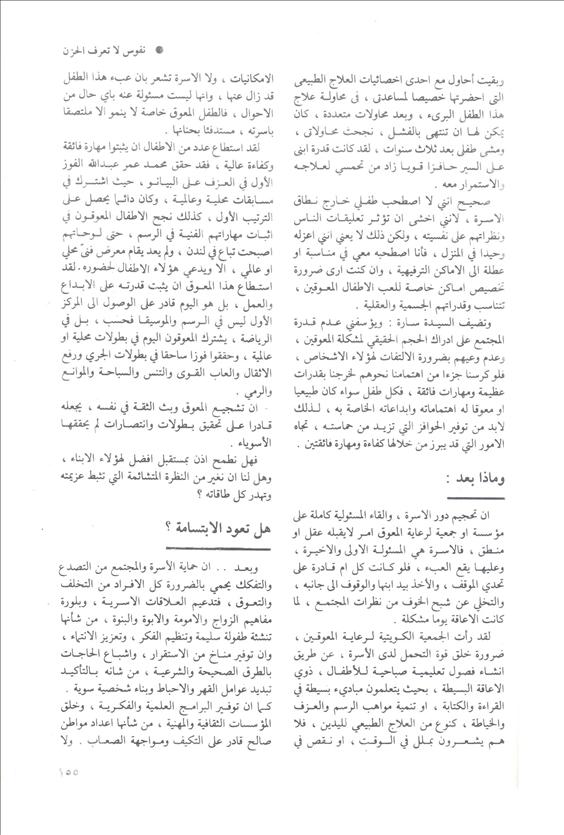 نفوس لا تعرف الحزن
وبقيت أحاول مع احدى اخصائيات العلاج الطبيعي
التى احضرتها خصيصا لمساعدتى ، فى محاولة علاج
هذا الطفل البرىء ، وبعد محاولات متعددة ، كان
يمكن لها ان تنتهى بالفشل ، نجحت محاولاتى ،
ومشى طفلى بعد ثلاث سنوات ، لقد كانت قدرة ابنى
على السير حافزا قويا زاد من تحمسي لعلاجه
والاستمرار معه .
صحيح انني لا اصطحب طفلي خارج نطاق
الاسرة ، لأنني اخشى ان تؤثر تعليقات الناس
ونظراتهم على نفسيته ، ولكن ذلك لا يعني انني اعزله
وحيدا في المنزل ، فأنا اصطحبه معي في مناسبة او
عطلة الى الاماكن الترفيهية ، وان كنت ارى ضرورة
تخصيص اماكن خاصة للعب الاطفال المعوقين ،
تتناسب وقدراتهم الجسمية والعقلية .
وتضيف السيدة سارة : ويؤسفني عدم قدرة
المجتمع على ادراك الحجم الحقيقي لمشكلة المعوقين ،
وعدم وعيهم بضرورة الالتفات لهؤلاء الاشخاص ،
فلو كرسنا جزءا من اهتمامنا نحوهم لخرجنا بقدرات
عظيمة ومهارات فائقة ، فكل طفل سواء كان طبيعيا
او معوقا له اهتماماته وابداعاته الخاصة به ، لذلك
لابد من توفير الحوافز التي تزيد من حماسته ، تجاه
الامور التي قد يبرز من خلالها كفاءة ومهارة فائقتين .
وماذا بعد :
ان تحجيم دور الاسرة ، والقاء المسئولية كاملة على
مؤسسة او جمعية لرعاية المعوق امر لايقبله عقل او
منطق ، فالاسرة هي المسئولة الاولى والاخيرة ،
وعليها يقع العبء ، فلو كانت كل ام قادرة على
تحدي الموقف ، والأخذ بيد ابنها والوقوف الى جانبه ،
والتخلي عن شبح الخوف من نظرات المجتمع ، لما
كانت الاعاقة يوما مشكلة .
لقد رأت الجمعية الكويتية لرعاية المعوقين ،
ضرورة خلق قوة التحمل لدى الأسرة ، عن طريق
انشاء فصول تعليمية صباحية للأطفال ، ذوي
الاعاقة البسيطة ، بحيث يتعلمون مباديء بسيطة في
القراءة والكتابة ، او تنمية مواهب الرسم والعزف
والخياطة ، كنوع من العلاج الطبيعي لليدين ، فلا
هم يشعرون بملل في الوقت ، او نقص في
الامكانيات ، ولا الاسرة تشعر بان عبء هذا الطفل
قد زال عنها ، وانها ليست مسئولة عنه باي حال من
الاحوال ، فالطفل المعوق خاصة لا ينمو الا ملتصقا
باسرته ، مستدفئا بحنانها .
لقد استطاع عدد من الاطفال ان يثبتوا مهارة فائقة
وكفاءة عالية ، فقد حقق محمد عمر عبدالله الفوز
الأول في العزف على البيانو ، حيث اشترك في
مسابقات محلية وعالمية ، وكان دائما يحصل على
الترتيب الأول ، كذلك نجح الاطفال المعوقون في
اثبات مهاراتهم الفنية في الرسم ، حتى لوحاتهم
اصبحت تباع في لندن ، ولم يعد يقام معرض فنى محلي
او عالمي ، الا ويدعي هؤلاء الاطفال لحضوره. لقد
استطاع هذا المعوق ان يثبت قدرته على الابداع
والعمل ، بل هو اليوم قادر على الوصول الى المركز
الأول ليس في الرسم والموسيقا فحسب ، بل في
الرياضة ، يشترك المعوقون اليوم في بطولات محلية او
عالمية ، وحققوا فوزا ساحقا في بطولات الجري ورفع
الاثقال والعاب القوى والتنس والسباحة والموانع
والرمي .
ان تشجيع المعوق وبث الثقة في نفسه ، يجعله
قادرا على تحقيق بطولات وانتصارات لم يحققها
الأسوياء .
فهل نطمح اذن بمستقبل افضل لهؤلاء الابناء ،
وهل لنا ان نغير من النظرة المتشائمة التي تثبط عزيمته
وتهدر كل طاقاته ؟
هل تعود الابتسامة ؟
وبعد .. ان حماية الأسرة والمجتمع من التصدع
والتفكك يحمي بالضرورة كل الافراد من التخلف
والتعوق ، فتدعيم العلاقات الاسرية ، وبلورة
مفاهيم الزواج والامومة والابوة والبنوة ، من شأنها
تنشئة طفولة سليمة وتنظيم الفكر ، وتعزيز الانتماء ،
وان توفير مناخ من الاستقرار ، واشباع الحاجات
بالطرق الصحيحة والشرعية ، من شانه بالتأكيد
تبديد عوامل القهر والاحباط وبناء شخصية سوية .
كما ان توفير البرامج العلمية والفكرية ، وخلق
المؤسسات الثقافية والمهنية ، من شأنها اعداد مواطن
صالح قادر على التكيف ومواجهة الصعاب . ولا
١٥٥